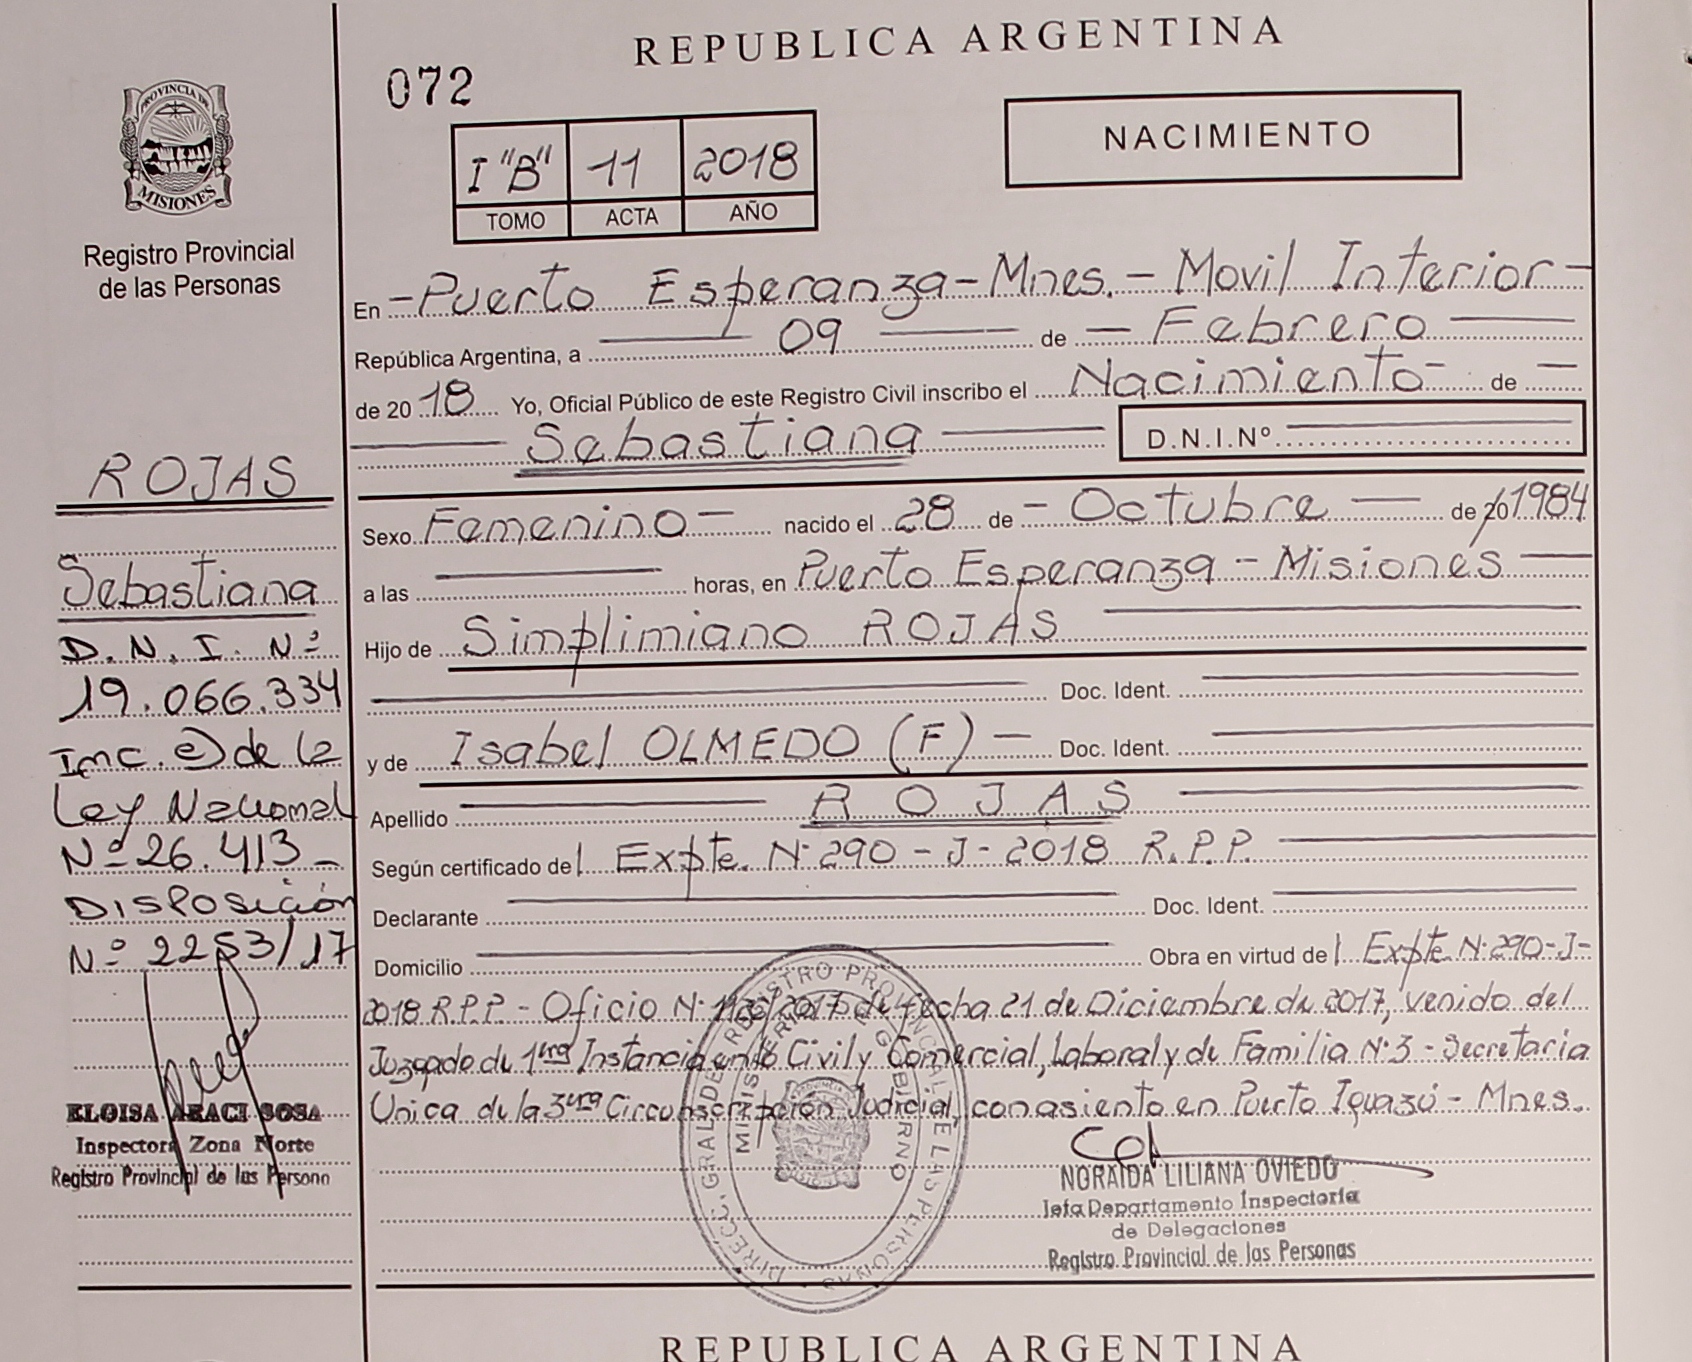 REPUBLICA ARGENTINA
072
PROVINCIA DE
MISIONES
Registro Provincial
de las Personas
I "B" 11 2018
TOMO ACTA AÑO
NACIMIENTO
En -Puerto Esperanza-Mnes.- Movil Interior-
República Argentina, a 09 de - Febrero
de 20 18 Yo, Oficial Público de este Registro Civil inscribo el Nacimiento- de -
Sebastiana D.N.I.Nº
ROJAS
Sebastiana
D.N.I. Nº
19.066.334
Inc. e) de la
Ley Nacional
Nº 26.413-
Disposición
Nº 2253/17
ELOISA ARACI SOSA
Inspectora Zona Norte
Registro Provincial de las Persona
Sexo Femenino - nacido el 28 de - Octubre - de 20 1984
a las horas, en Puerto Esperanza - Misiones
Hijo de Simplimiano ROJAS
Doc. Ident.
y de Isabel OLMEDO (F) - Doc. Ident.
Apellido ROJAS
Según certificado del Expte. Nº 290 - J - 2018 R.P.P.
Declarante Doc. Ident.
Domicilio Obra en virtud del Expte. Nº 290-J-
2018 R.P.P. - Oficio Nº /2017 de fecha 21 de Diciembre de 2017, venido del
Juzgado de 1era Instancia en lo Civil y Comercial, Laboral y de Familia Nº 3 - Secretaria
Unica de la 3era Circunscripción Judicial, con asiento en Puerto Iguazú - Mnes.
DIRECC. GRAL. DE REGISTRO PROVINCIAL DE LAS PERSONAS
MINISTERIO GOBIERNO
NORAIDA LILIANA OVIEDO
Jefa Departamento Inspectoría
de Delegaciones
Registro Provincial de las Personas
REPUBLICA ARGENTINA